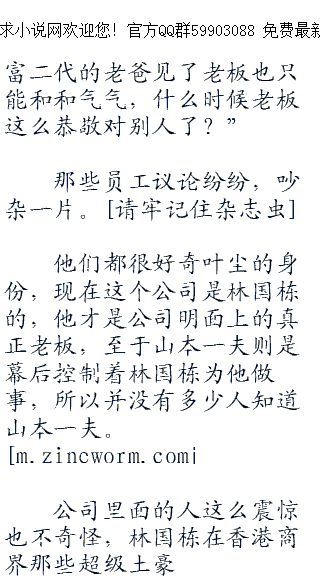 求小说网欢迎您！官方QQ群59903088 免费最新
富二代的老爸见了老板也只
能和和气气，什么时候老板
这么恭敬对别人了？”
那些员工议论纷纷，吵
杂一片。[请牢记住杂志虫]
他们都很好奇叶尘的身
份，现在这个公司是林国栋
的，他才是公司明面上的真
正老板，至于山本一夫则是
幕后控制着林国栋为他做
事，所以并没有多少人知道
山本一夫。
[m.zincworm.com]
公司里面的人这么震惊
也不奇怪，林国栋在香港商
界那些超级土豪